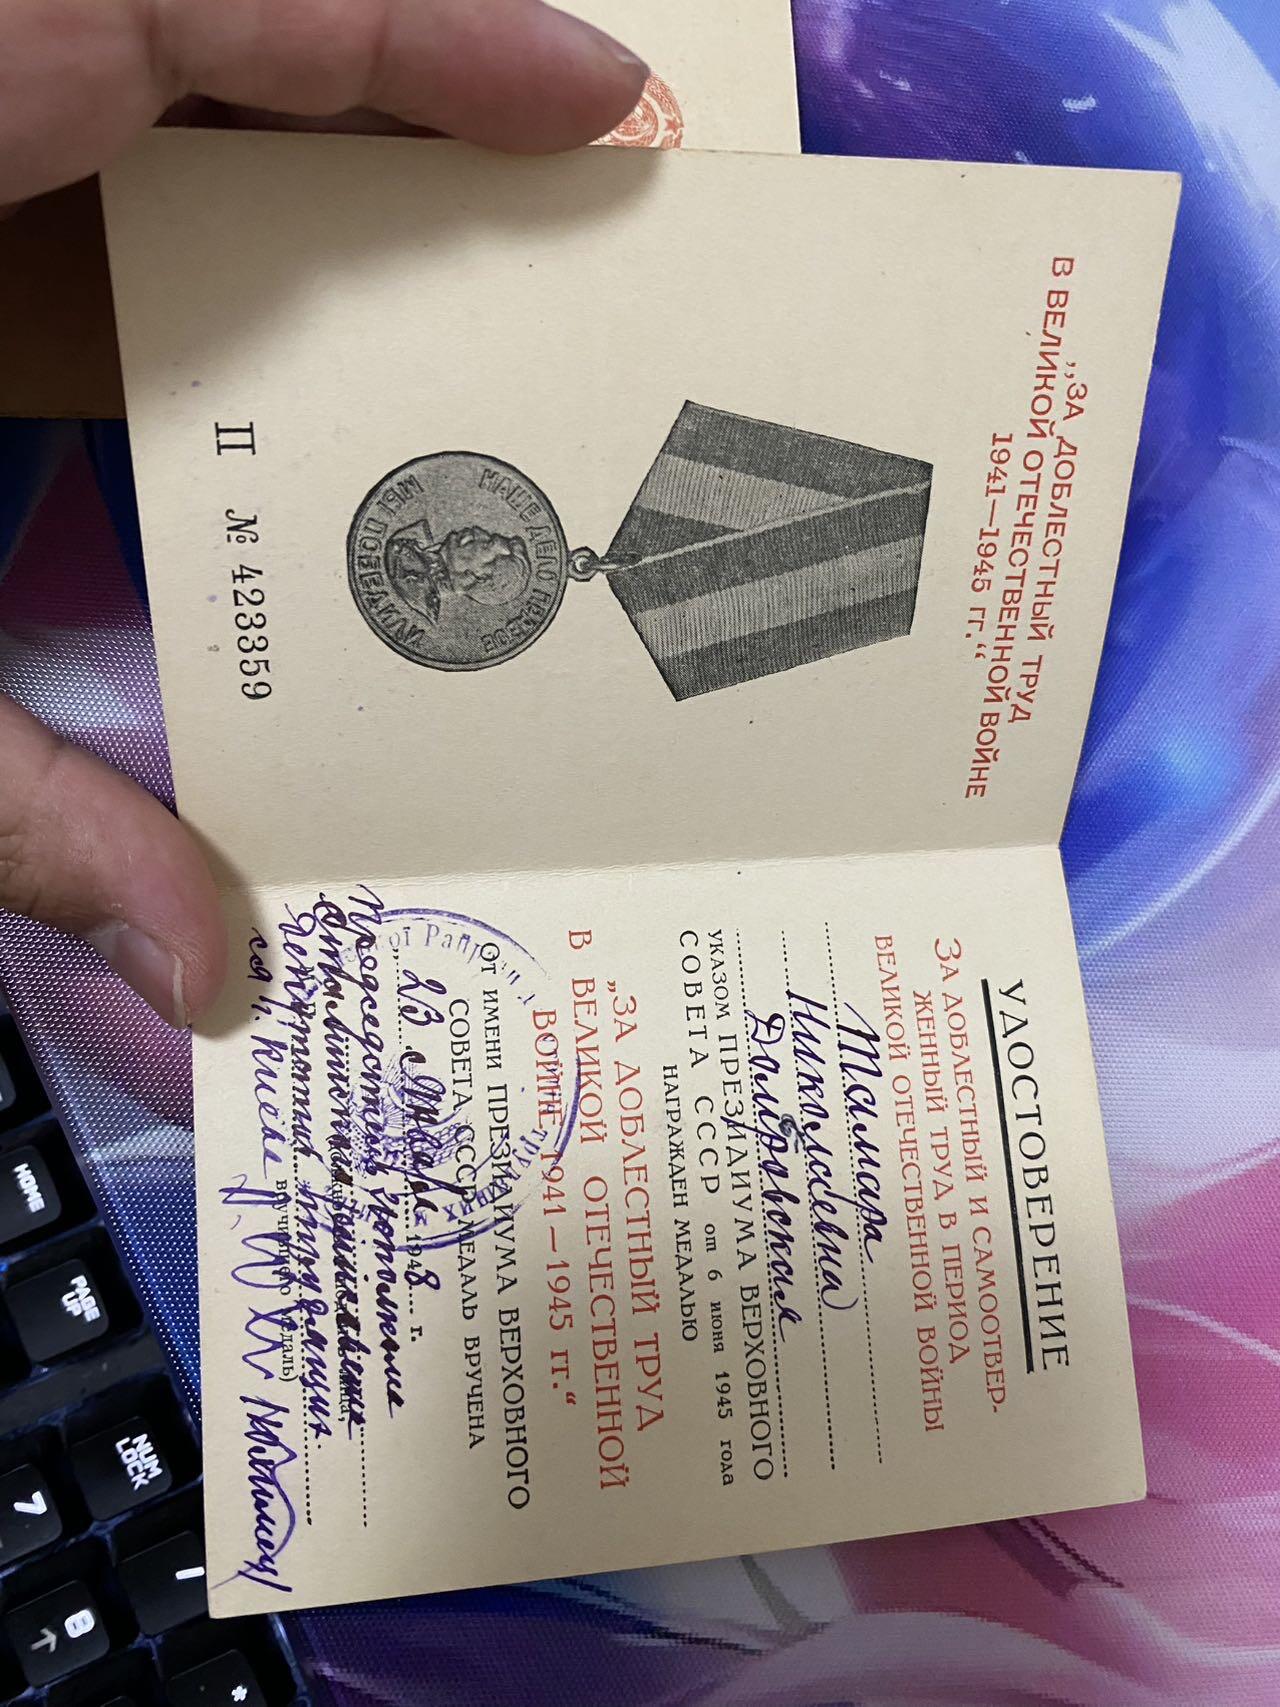 „ЗА ДОБЛЕСТНЫЙ ТРУД
В ВЕЛИКОЙ ОТЕЧЕСТВЕННОЙ ВОЙНЕ
1941—1945 гг.“
НАШЕ ДЕЛО ПРАВОЕ
МЫ ПОБЕДИЛИ
П № 423359
УДОСТОВЕРЕНИЕ
ЗА ДОБЛЕСТНЫЙ И САМООТВЕР-
ЖЕННЫЙ ТРУД В ПЕРИОД
ВЕЛИКОЙ ОТЕЧЕСТВЕННОЙ ВОЙНЫ
Тамара
Николаевна
УКАЗОМ ПРЕЗИДИУМА ВЕРХОВНОГО
СОВЕТА СССР от 6 июня 1945 года
НАГРАЖДЕН МЕДАЛЬЮ
„ЗА ДОБЛЕСТНЫЙ ТРУД
В ВЕЛИКОЙ ОТЕЧЕСТВЕННОЙ
ВОЙНЕ 1941—1945 гг.“
От ИМЕНИ ПРЕЗИДИУМА ВЕРХОВНОГО
СОВЕТА СССР МЕДАЛЬ ВРУЧЕНА
„23 1948 г.
Председатель исполкома
депутатов трудящих
ся г. Киева
вручившего медаль)
HOME
PAGE
UP
NUM
LOCK
7
8
*